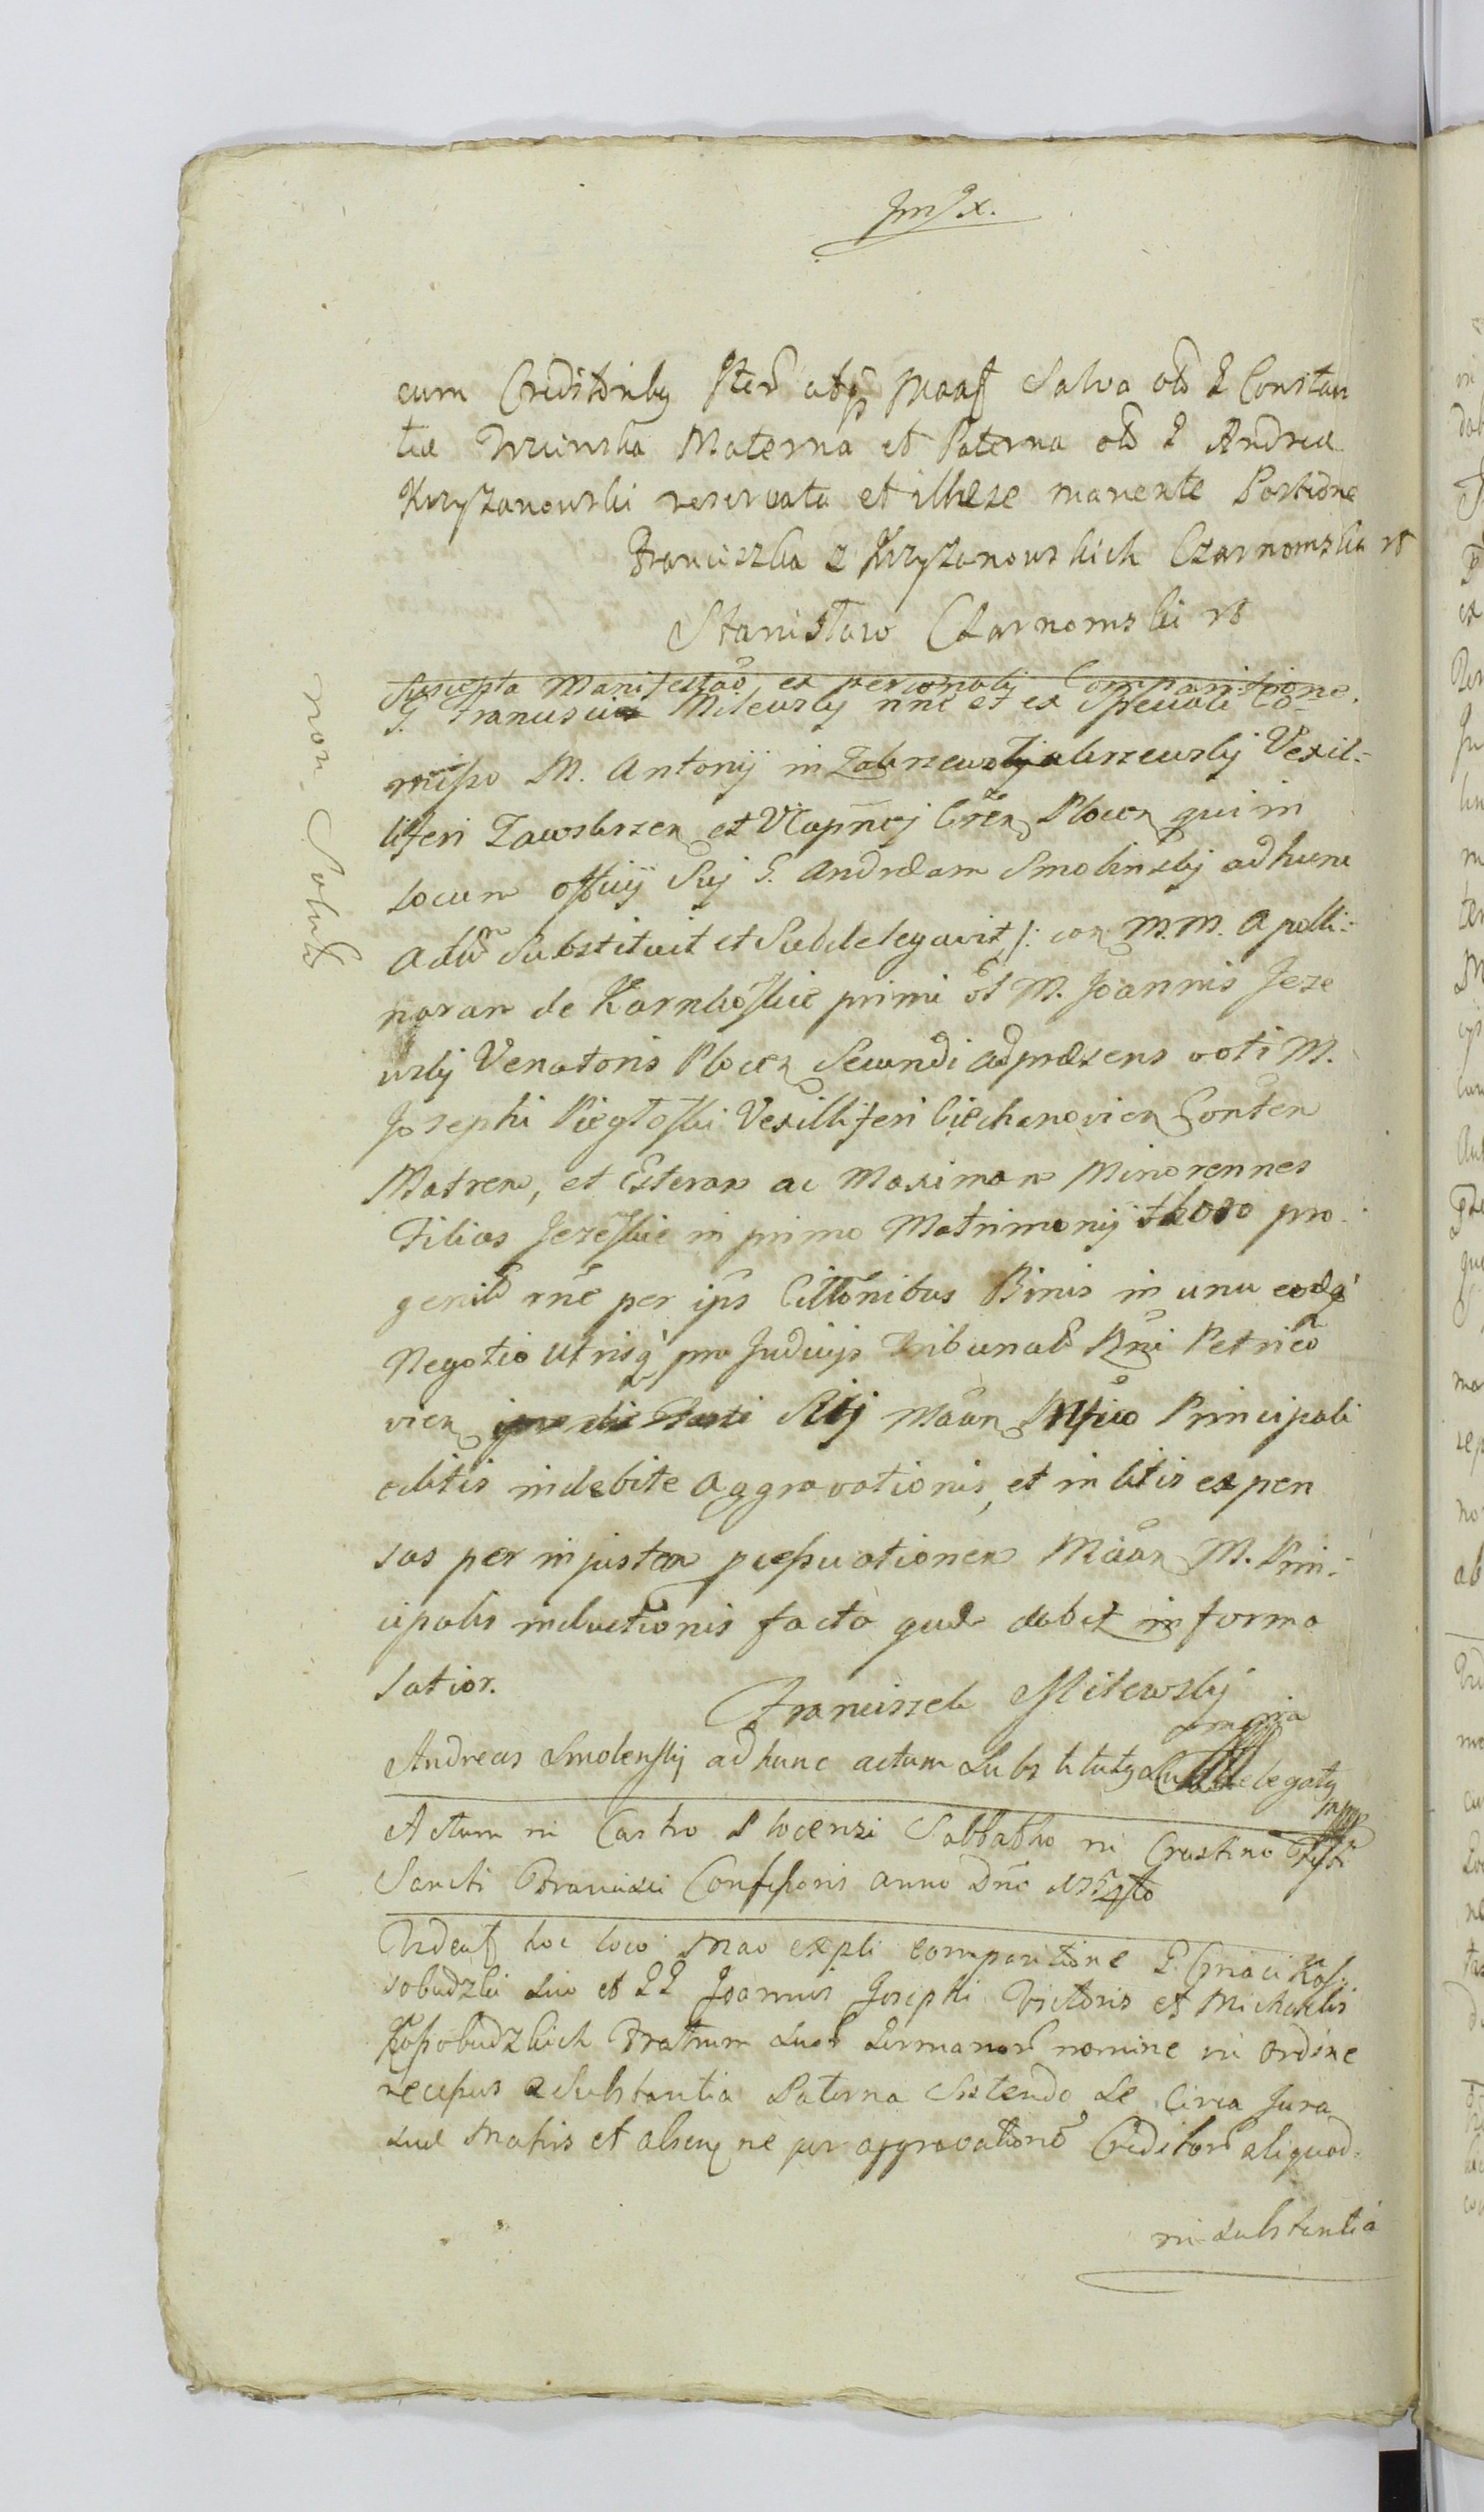 cum Creditoribg Iterũ atqꝫ Salva oło G Constan
tiæ Materna et Paterna oło G Andreæ
Krzyżanowski reservata et illæse manente Portione
Franciszka z Krzyżanowskich Czarnomska
Stanisław Czarnomski
Suscepta Manifestao, ex personali Comparitione
G. Francisci Milewskj nne et ex Speciali Co-
misso M. Antonij in Vexil-
liferi Zawskrzen et Vicapnej Plocen qui in
locum officij Suj G. Andræam Smolinskj ad hunc
Actũ Substituit et Subdelegavit /: con M.M. Apolli-
naram de Karnkoskie primi et M. Joannis Jeze
wskj Venatoris Plocen Secundi ad præsens voti M.
Josephi Pięgłoski Vexilliferi Ciechanovien Conten
Matrem, et Esteram ac Maximam Minorennes
Filias Jezeskie in primo Matrimonij thoro pro-
genit rne per ips Cittõnibus Binis in unu eodq
Negotio utrisq pro Judicijs Tribunal Rni Petrico
vien Maan Principali
editis indebite aggravationis, et in litis expen
sas per injustam Maan M. Prin-
cipalis inductionis facta quæ dabit in forma
latior.
Franciszek Milewskj
mpria
Andreas Smolenskj ad hunc actum Substitutg Subdelegatg
mpp
Actum in Castro Plocensi Sabbatho in Crastino Festi
Sancti Francisci Confessoris anno Dni
hoc loco Mao expli comparitione G.
sobudzki suo et GG Joannis Josephi Victoris et Michaelis
Kossobudzkich Fratrum suor Germanor nomine in ordine
recessus a Substantia Paterna Sistendo Se Circa Jura
suæ Matris et ne per aggravationẽ Creditorũ aliquod
in substantia
non Solut